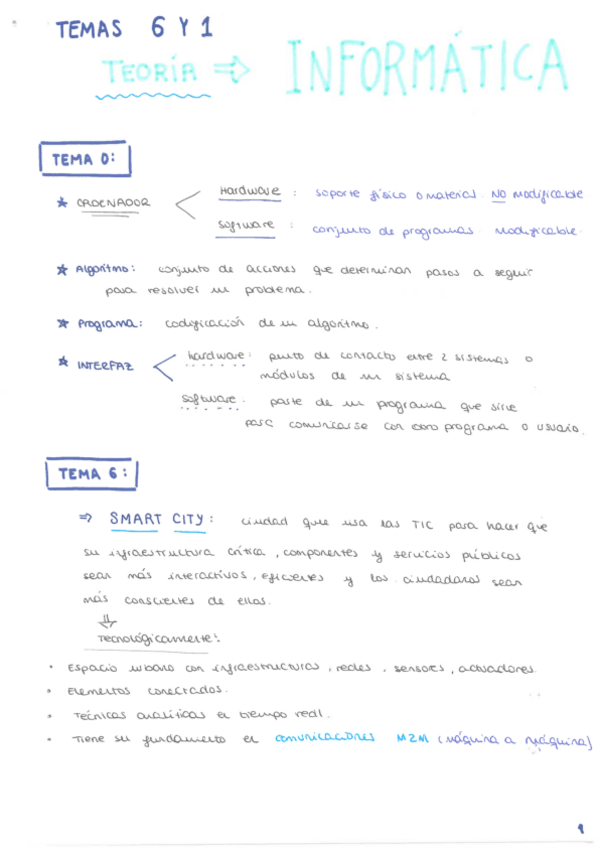 TEMAS 6 Y 1
TEORÍA ⇒ INFORMÁTICA
TEMA 0:
★ ORDENADOR
Hardware : soporte físico o material. NO modificable
Software : conjunto de programas. Modificable.
★ Algoritmo: conjunto de acciones que determinan pasos a seguir
para resolver un problema.
★ Programa: codificación de un algoritmo.
★ INTERFAZ
hardware: punto de contacto entre 2 sistemas o
módulos de un sistema
software: parte de un programa que sirve
para comunicarse con otro programa o usuario.
TEMA 6:
⇒ SMART CITY: ciudad que usa las TIC para hacer que
su infraestructura crítica, componentes y servicios públicos
sean más interactivos, eficientes y los ciudadanos sean
más conscientes de ellos.
⇓
Tecnológicamente:
• Espacio urbano con infraestructuras, redes, sensores, actuadores.
• Elementos conectados.
• Técnicas analíticas en tiempo real.
• Tiene su fundamento en comunicaciones M2M (Máquina a Máquina)
1